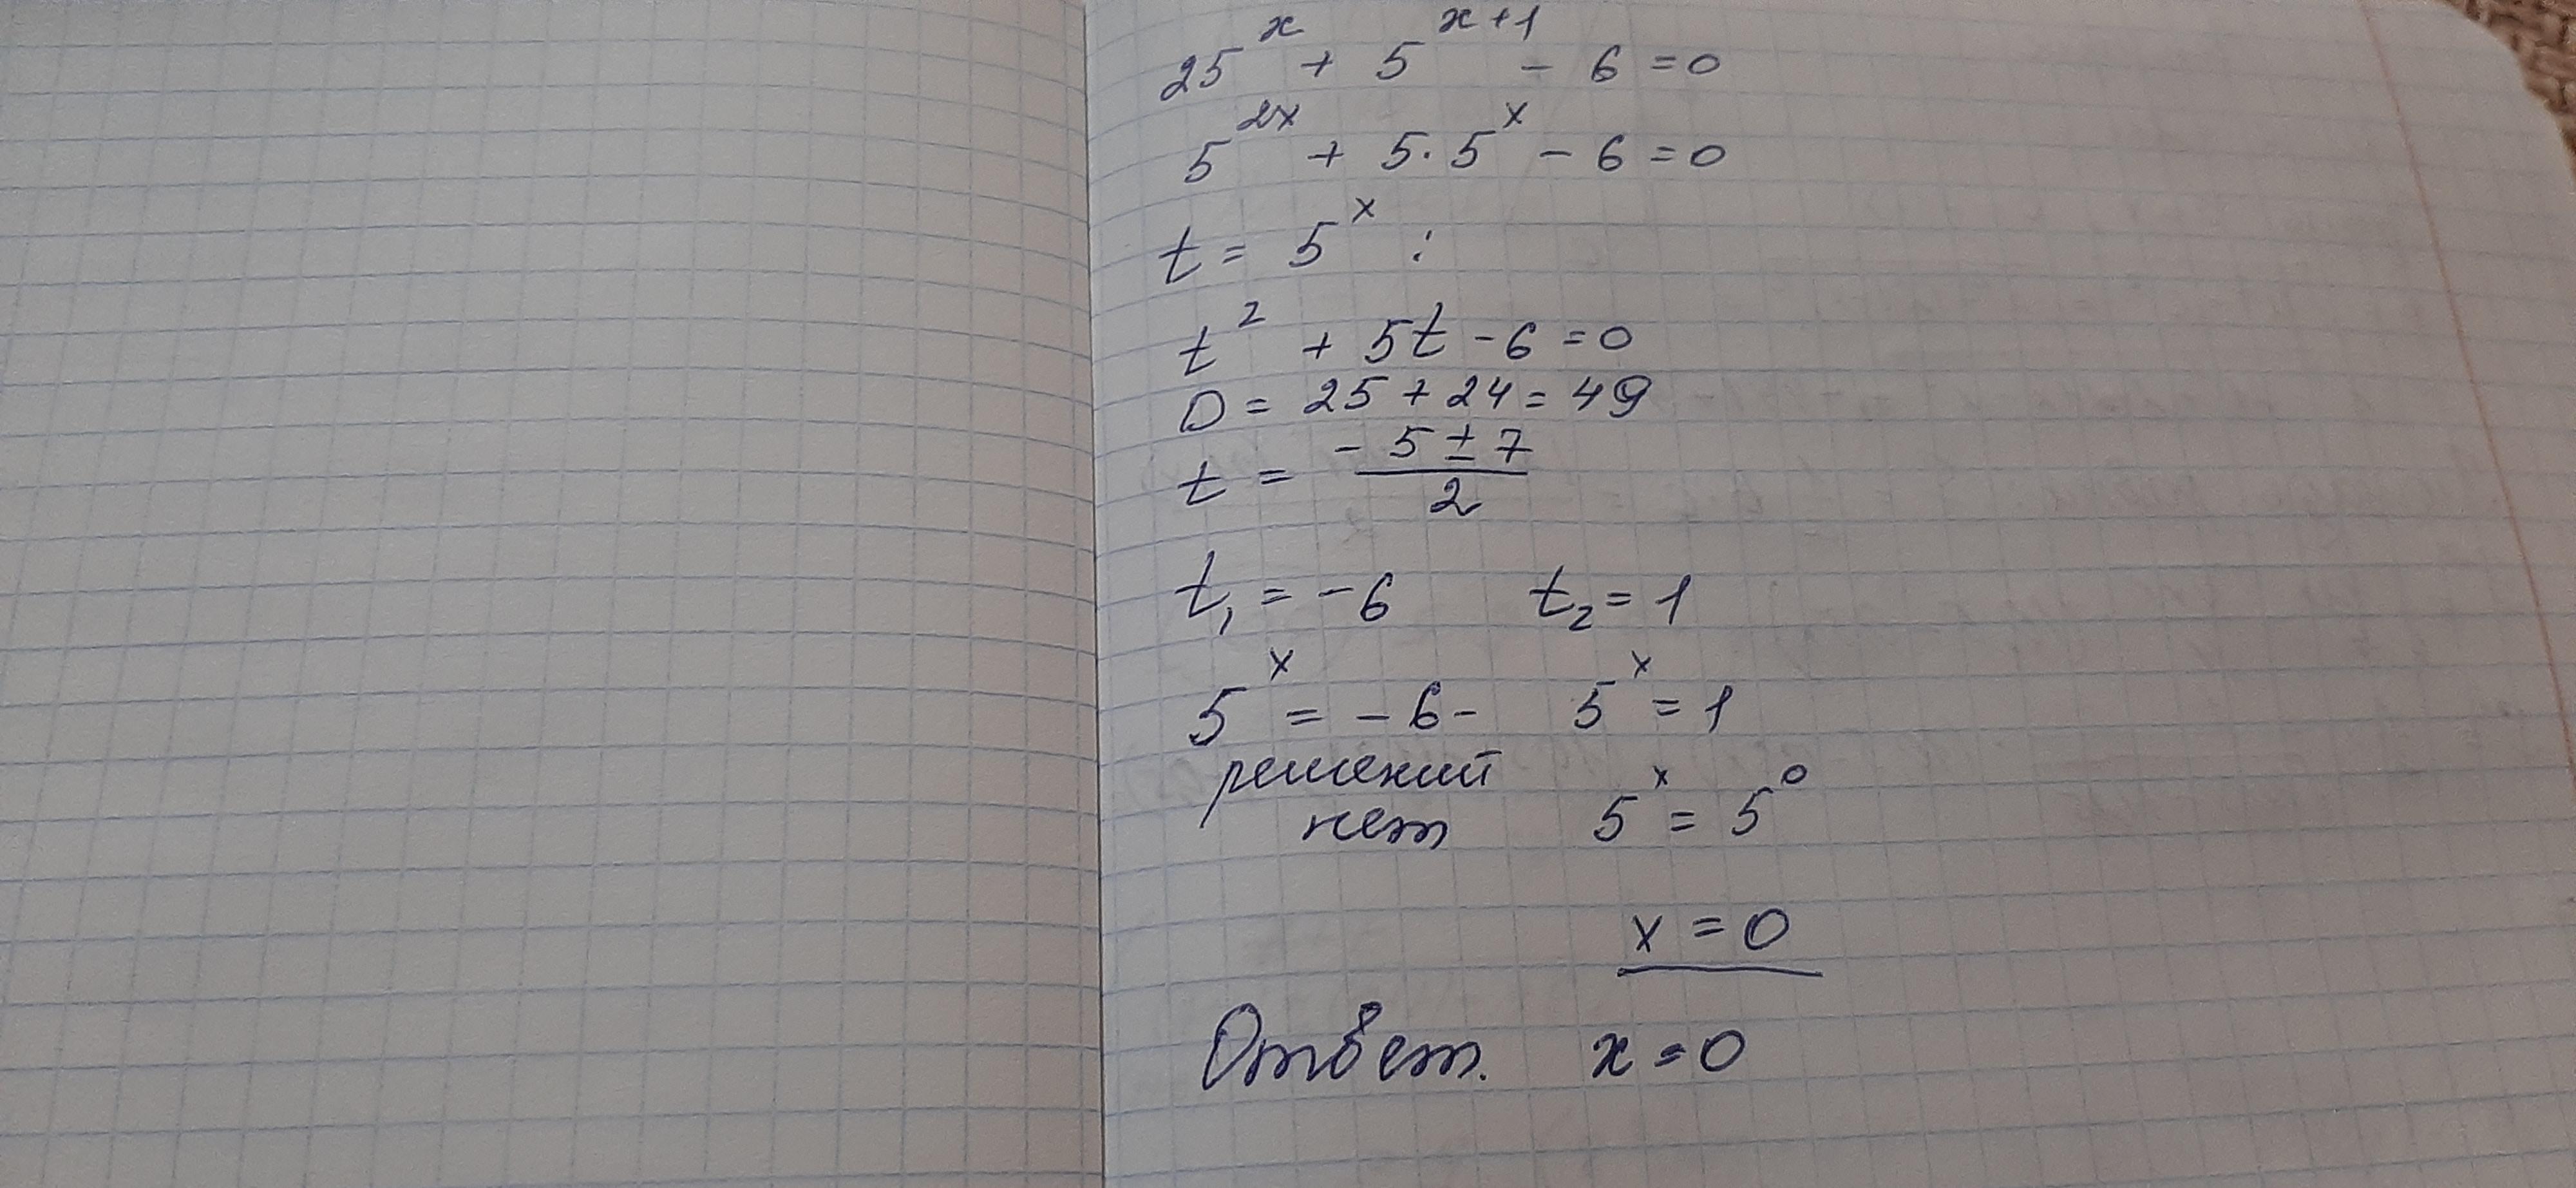 25^x + 5^(x+1) - 6 = 0
5^(2x) + 5·5^x - 6 = 0
t = 5^x :
t^2 + 5t - 6 = 0
D = 25 + 24 = 49
t = (-5 ± 7)/2
t₁ = -6    t₂ = 1
5^x = -6 -    5^x = 1
решений
нет    5^x = 5^0
x = 0
Ответ.  x = 0